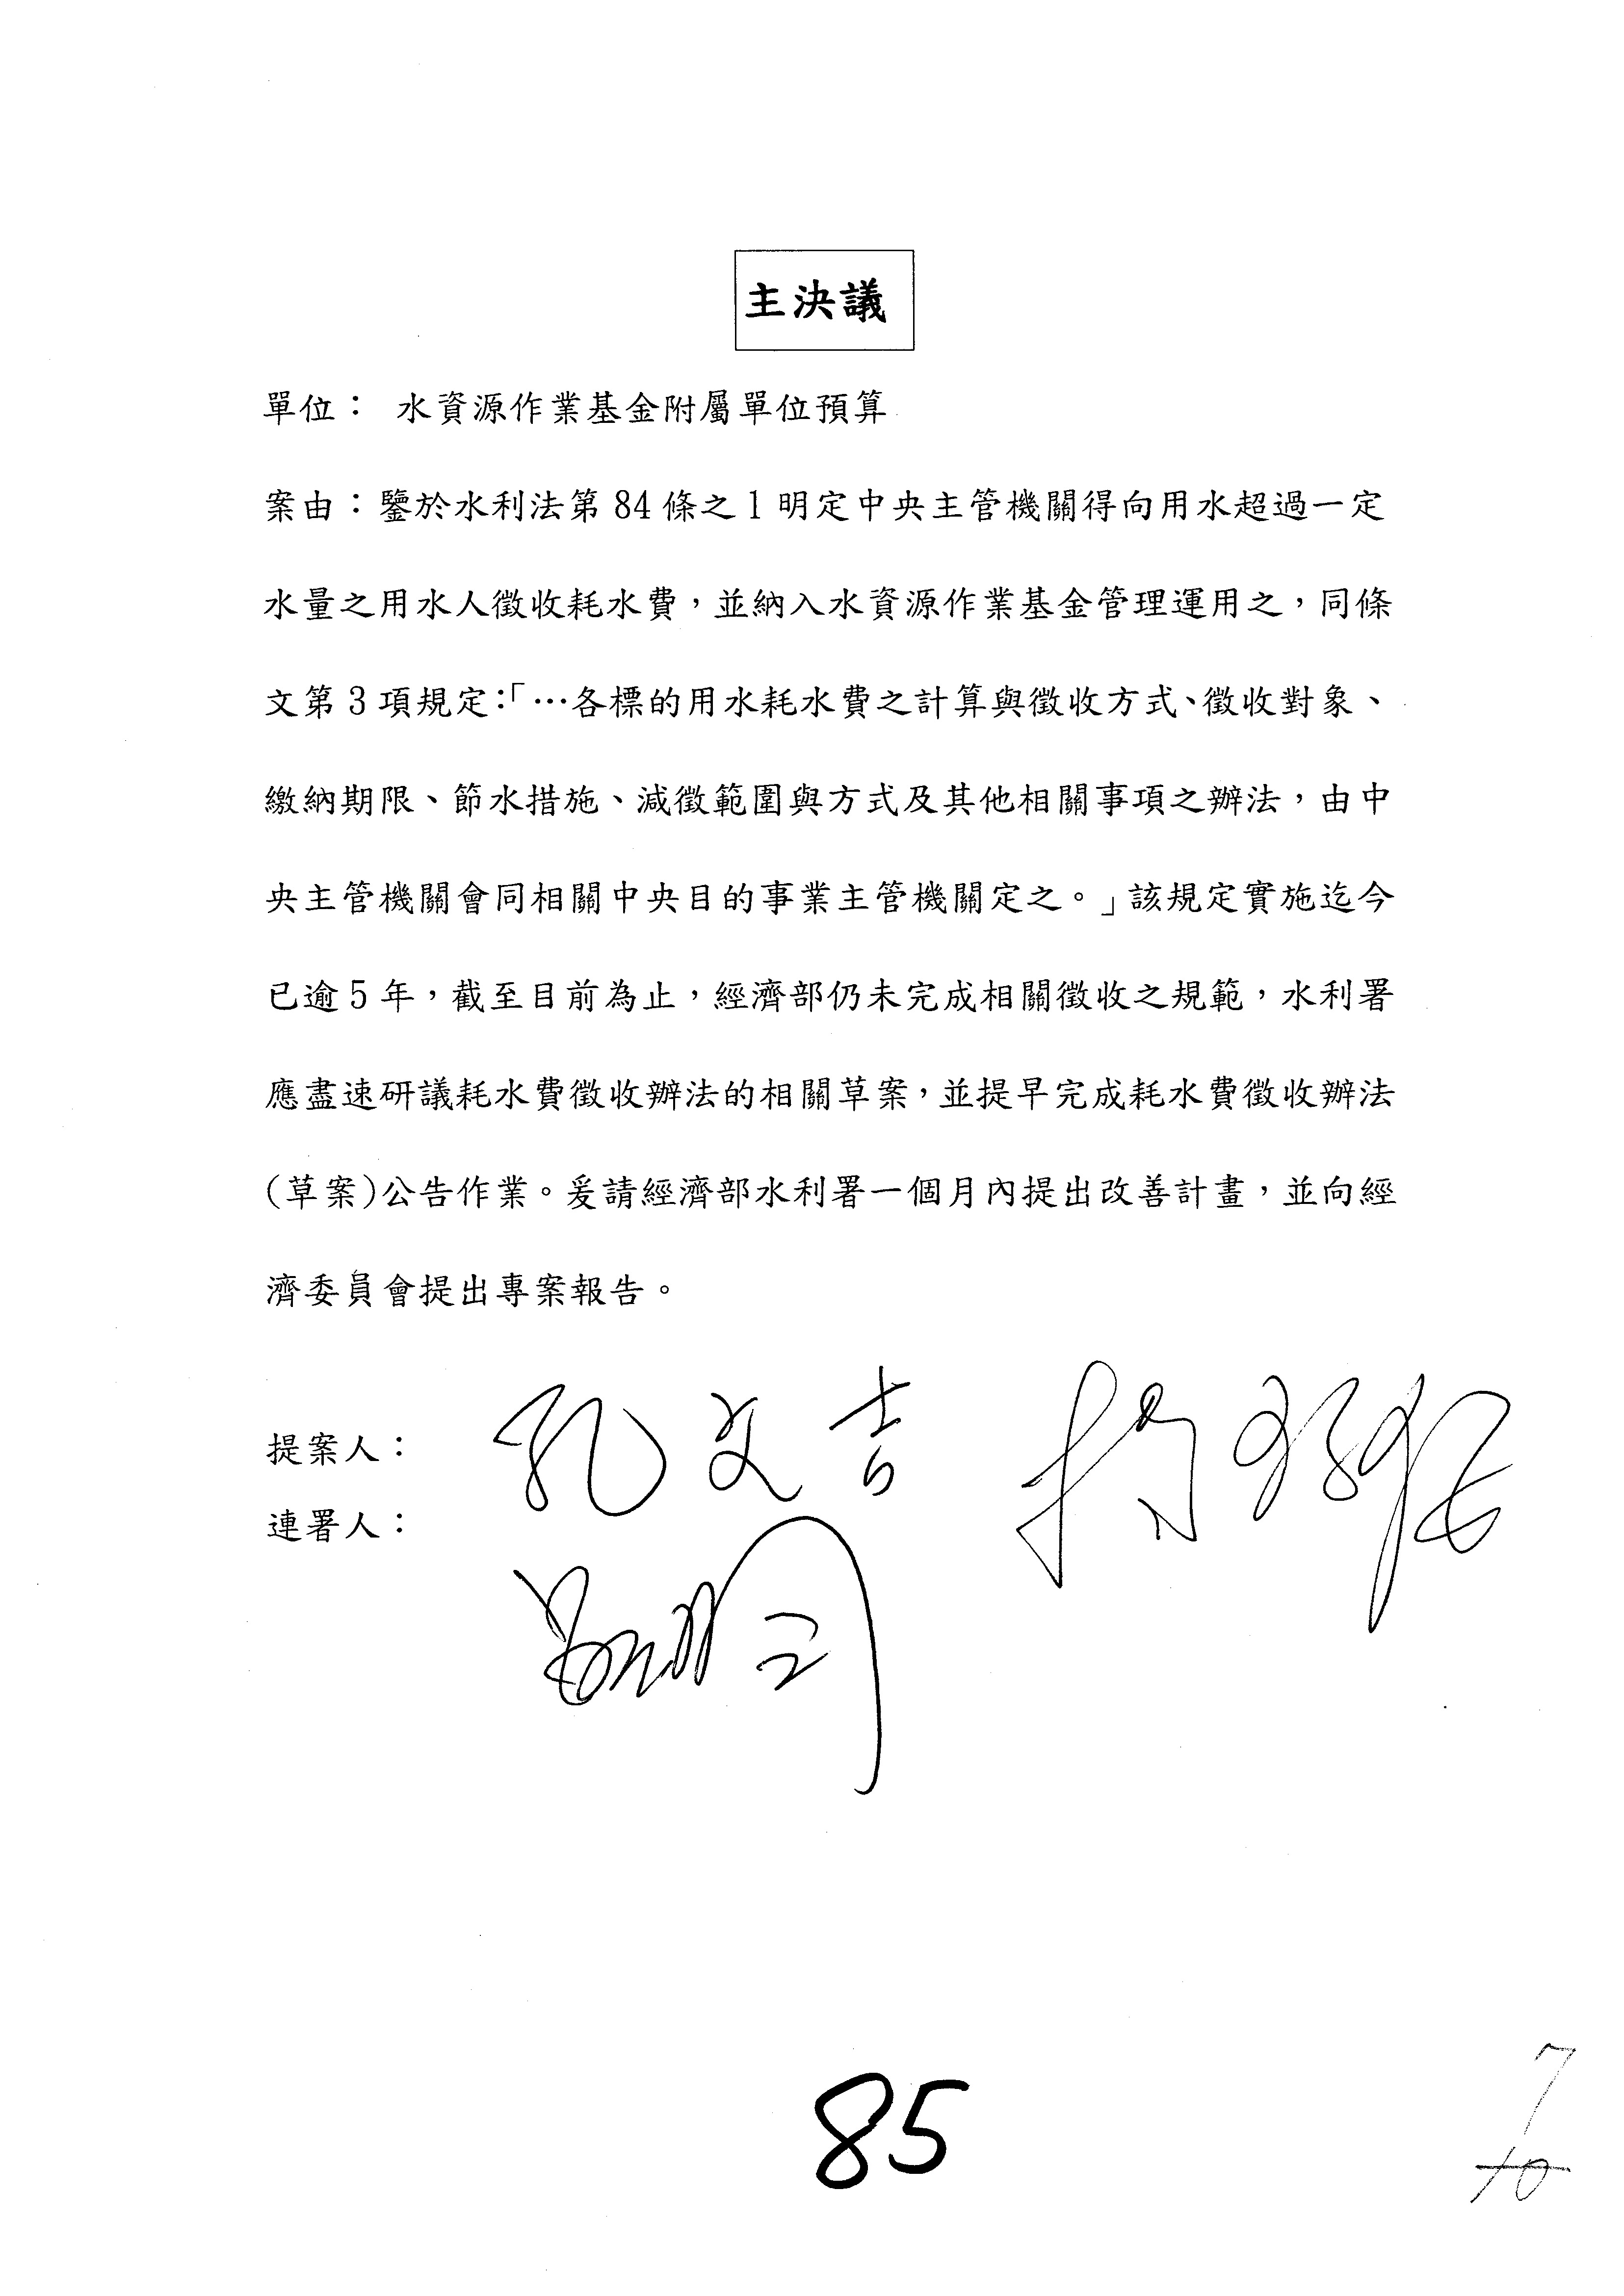 主決議
單位： 水資源作業基金附屬單位預算
案由：鑒於水利法第 84 條之 1 明定中央主管機關得向用水超過一定
水量之用水人徵收耗水費，並納入水資源作業基金管理運用之，同條
文第 3 項規定：「…各標的用水耗水費之計算與徵收方式、徵收對象、
繳納期限、節水措施、減徵範圍與方式及其他相關事項之辦法，由中
央主管機關會同相關中央目的事業主管機關定之。」該規定實施迄今
已逾 5 年，截至目前為止，經濟部仍未完成相關徵收之規範，水利署
應盡速研議耗水費徵收辦法的相關草案，並提早完成耗水費徵收辦法
(草案)公告作業。爰請經濟部水利署一個月內提出改善計畫，並向經
濟委員會提出專案報告。
提案人： 孔文吉
連署人：
85
7
10